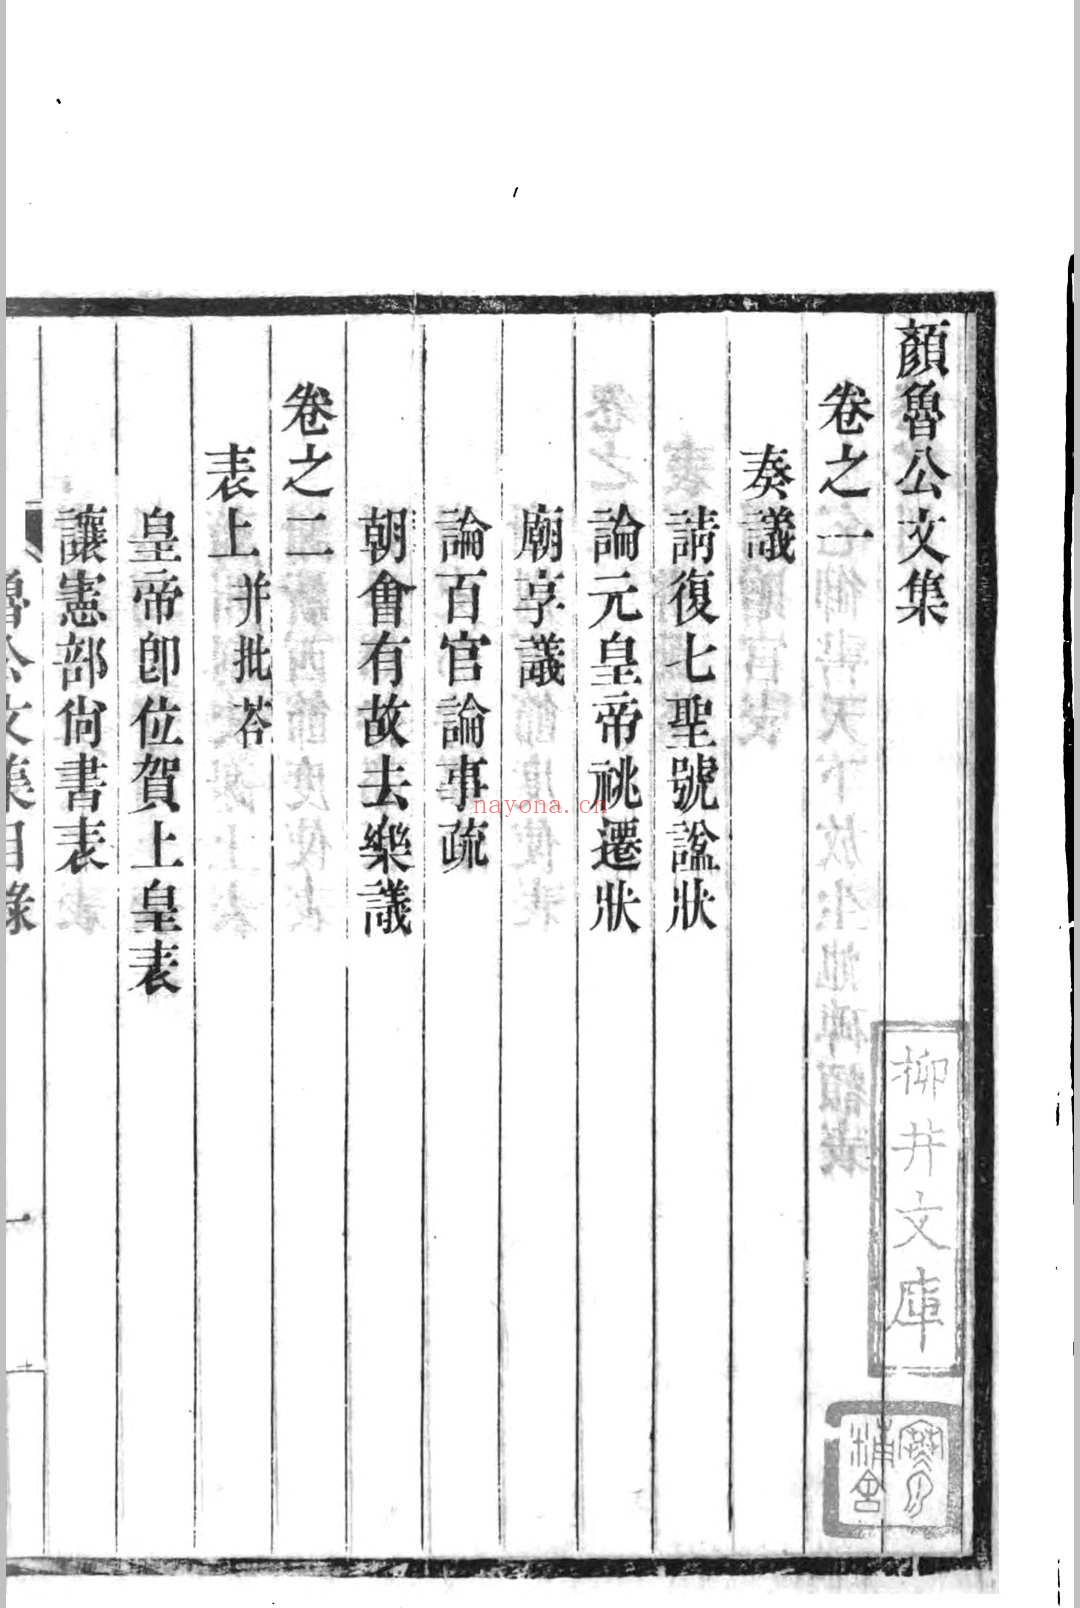 顏魯公文集
卷之一
奏議
請復七聖號諡狀
論元皇帝祧遷狀
廟享議
論百官論事疏
朝會有故去樂議
卷之二
表上并批荅
皇帝卽位賀上皇表
讓憲部尙書表
魯公文集目錄
一
柳井文庫
nayona.cn